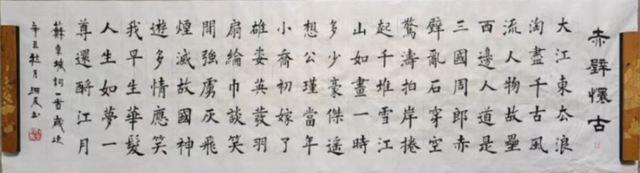 赤壁懷古
大江東去浪
淘盡千古風
流人物故壘
西邊人道是
三國周郎赤
壁亂石穿空
驚濤拍岸捲
起千堆雪江
山如畫一時
多少豪傑遙
想公瑾當年
小喬初嫁了
雄姿英發羽
扇綸巾談笑
間強虜灰飛
煙滅故國神
遊多情應笑
我早生華髮
人生如夢一
尊還酹江月
蘇東坡詞一首歲次
辛丑